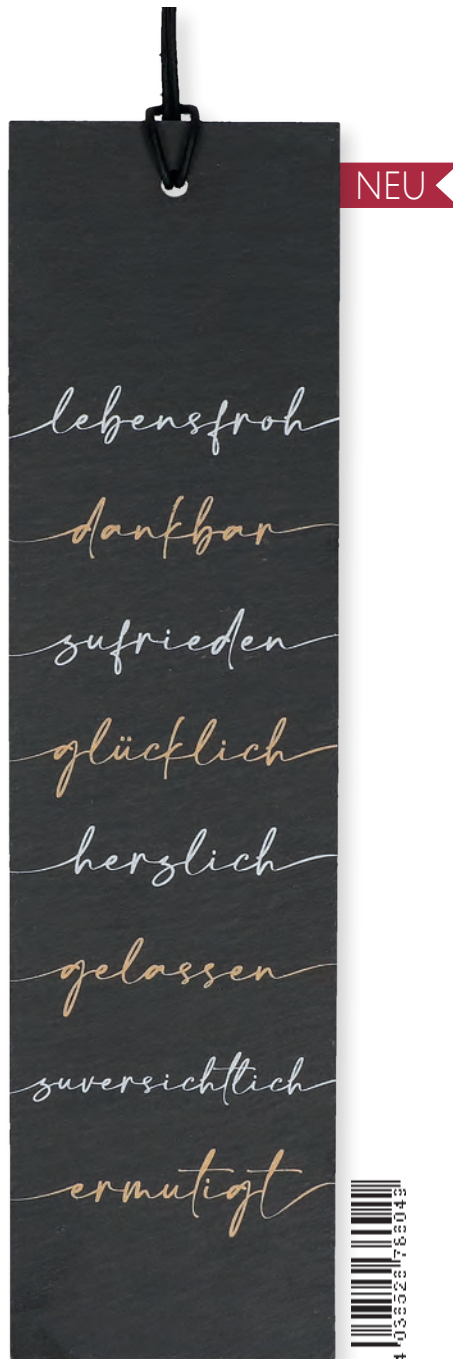 NEU
lebensfroh
dankbar
zufrieden
glücklich
herzlich
gelassen
zuversichtlich
ermutigt